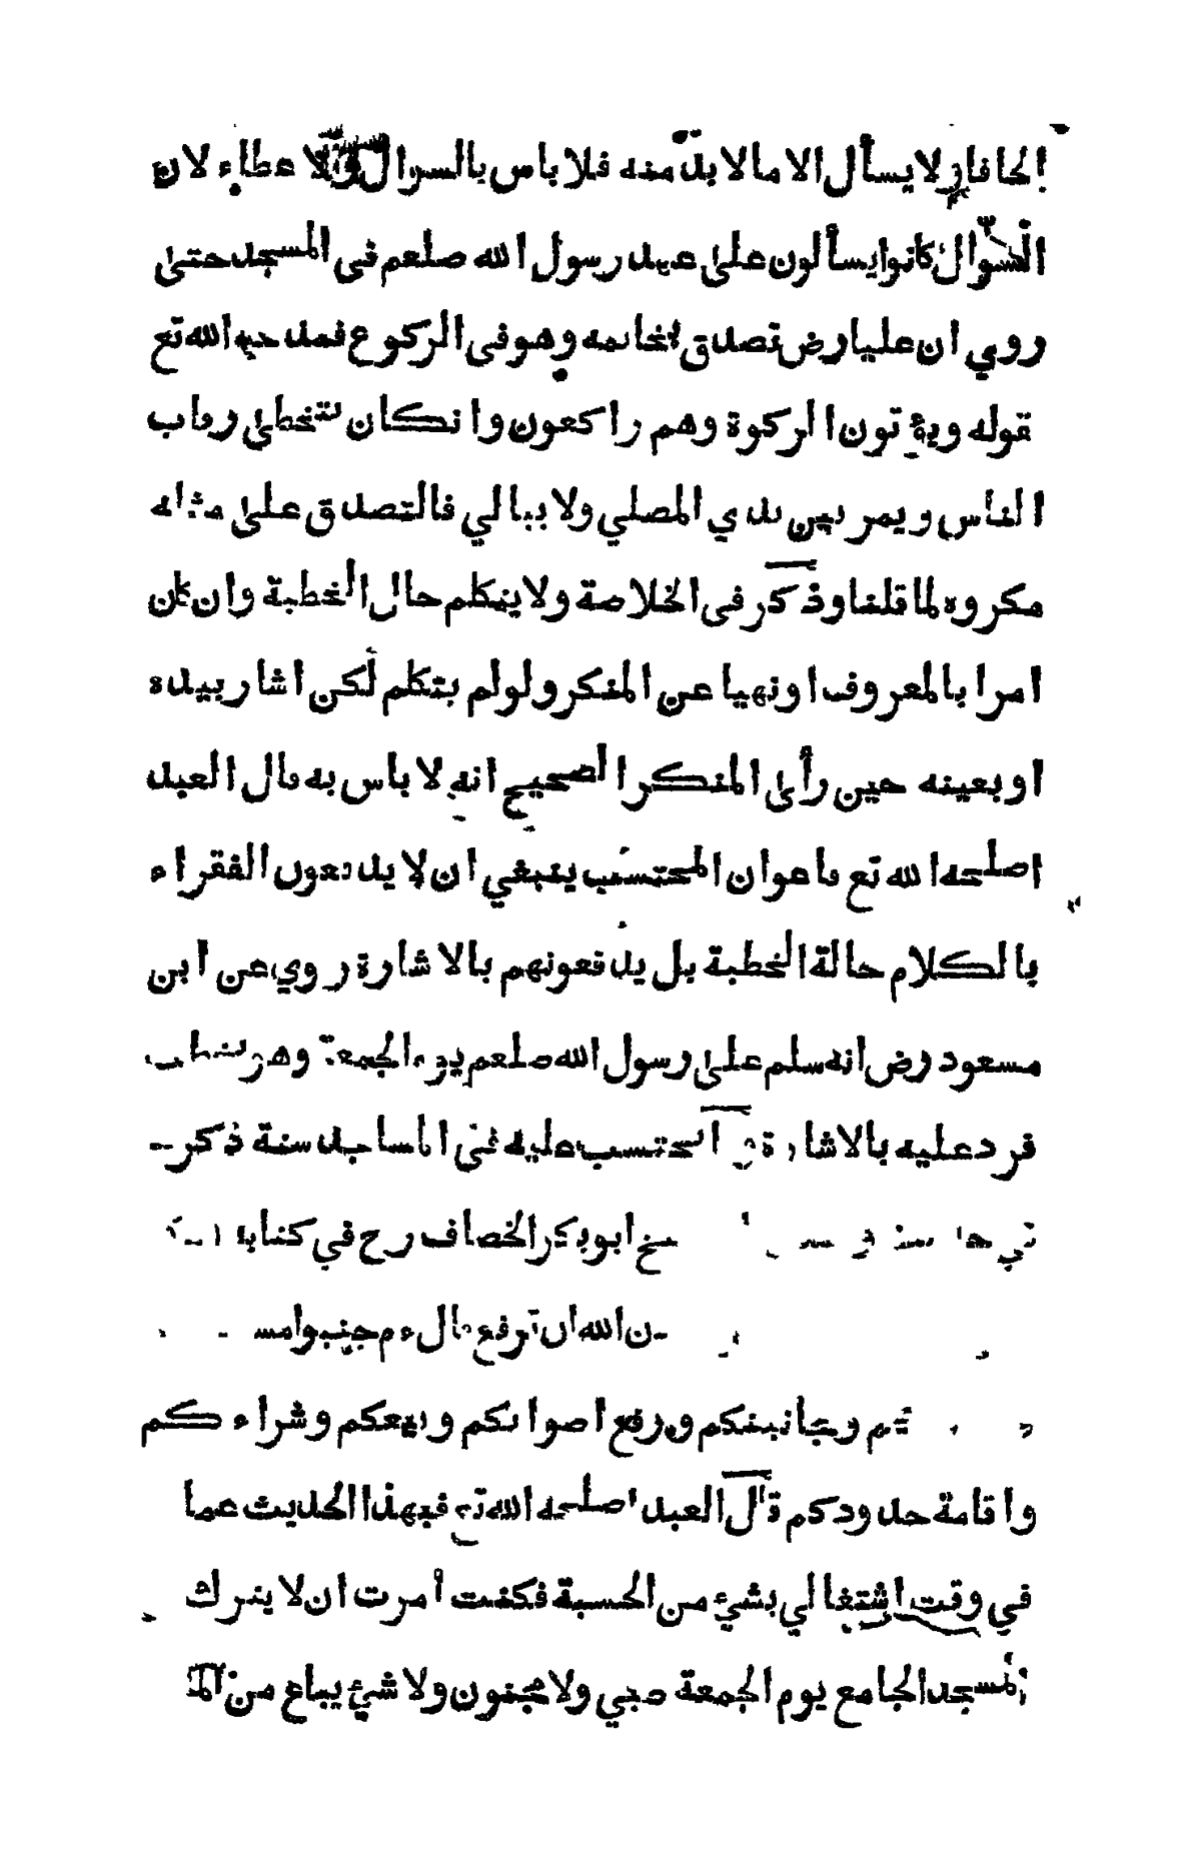 الحافا ولا يسأل الا مالا بد منه فلا باس بالسوال ولا عطاء لان
السّوال كانوا يسألون على عهد رسول الله صلعم في المسجد حتى
روي ان عليا رض تصدق بخاتمه وهو في الركوع فمدحه الله تع
قوله ويؤتون الزكوة وهم راكعون وانكان يتخطى رقاب
الناس ويمر بين يدي المصلي ولا يبالي فالتصدق على مثله
مكروه لما قلنا وذكر في الخلاصة ولا يتكلم حال الخطبة وان كان
امرا بالمعروف او نهيا عن المنكر ولو لم يتكلم لكن اشار بيده
او بعينه حين رأى المنكر الصحيح انه لا باس به قال العبد
اصلحه الله تع فاعوان المحتسب ينبغي ان لا يدفعون الفقراء
بالكلام حالة الخطبة بل يدفعونهم بالاشارة روي عن ابن
مسعود رض انه سلم على رسول الله صلعم يوم الجمعة وهو يخطب
فرد عليه بالاشارة يحتسب عليه في المساجد سنة ذكر
في ابو بكر الخصاف رح في كتابه
ان الله ان ترفع جنبوا
ومجانينكم ورفع اصواتكم وبيعكم وشراء كم
واقامة حدودكم قال العبد اصلحه الله تع فبهذا الحديث عما
في وقت اشتغالي بشيء من الحسبة فكنت أمرت ان لا يترك
المسجد الجامع يوم الجمعة صبي ولا مجنون ولا شيء يباع من